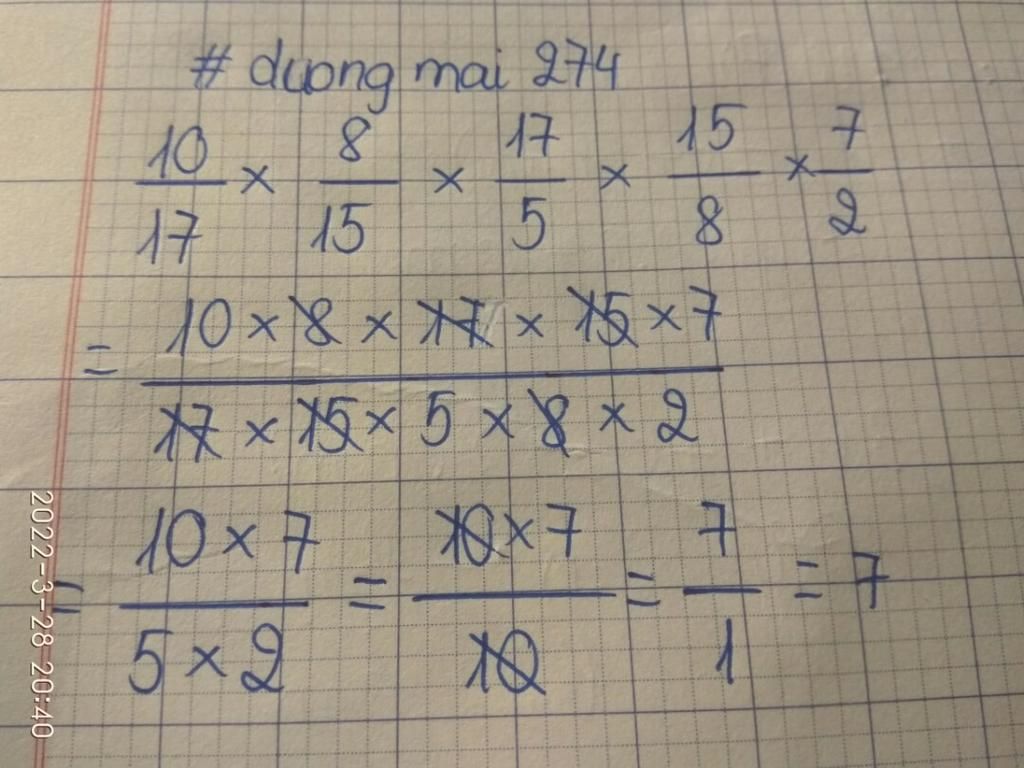 # duong mai 274
10/17 × 8/15 × 17/5 × 15/8 × 7/2
= 10 × 8 × 17 × 15 × 7 / 17 × 15 × 5 × 8 × 2
= 10 × 7 / 5 × 2 = 10 × 7 / 10 = 7/1 = 7
2022-3-28 20:40